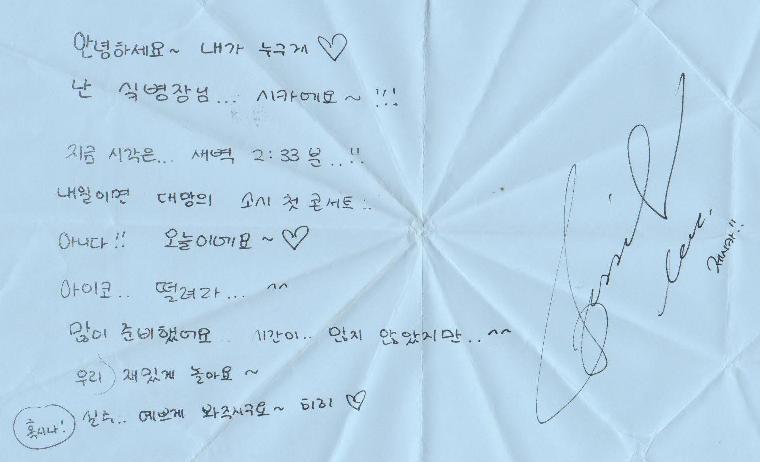 안녕하세요~ 내가 누구게 ♡
난 싴병장님... 시카에요~ !!!
지금 시각은... 새벽 2:33분..!!
내일이면 대망의 소시 첫 콘서트..
아니다!! 오늘이에요~ ♡
아이코.. 떨려라... ^^
많이 준비했어요.. 시간이.. 많지 않았지만..^^
우리 재밌게 놀아요~
혹시나! 실수.. 예쁘게 봐주시구요~ 히히 ♡
Jessica
제시카!!